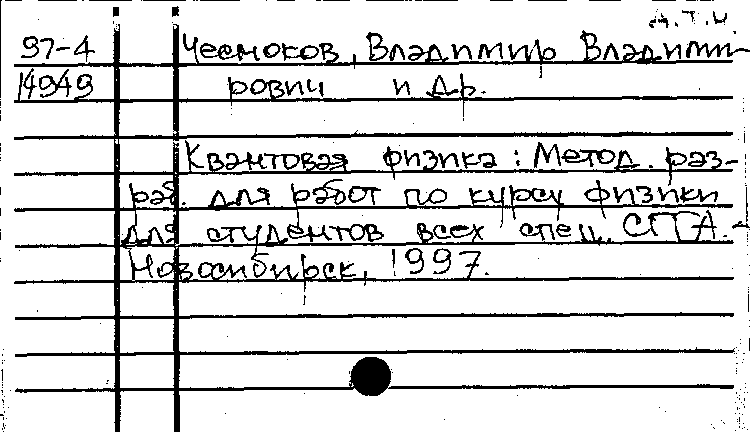 А.Т.И.
97-4 Чесноков, Владимир Владими-
14949 рович и др.
Квантовая физика: Метод. раз-
раб. для работ по курсу физики
для студентов всех спец. СГГА.-
Новосибирск, 1997.